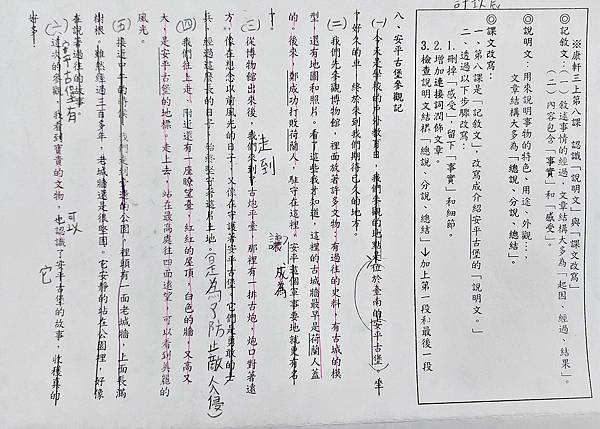 ※康軒三上第八課　認識「說明文」與「課文改寫」
◎記敘文：（一）敘述事情的經過，文章結構大多為「起因、經過、結果」。
（二）內容包含「事實」和「感受」。
◎說明文：用來說明事物的特色、用途、外觀…
文章結構大多為「總說、分說、總結」。
◎課文改寫：
一、第八課是「記敘文」，改寫成介紹安平古堡的「說明文」。
二、透過以下步驟改寫：
1.刪掉「感受」，留下「事實」和細節。
2.增加連接詞潤飾文章。
3.檢查說明文結構「總說、分說、總結」→加上第一段和最後一段
八、安平古堡參觀記
（一）今天是學校的戶外教育日，我們參觀的地點是位於臺南的安平古堡，坐
了好久的車，終於來到我們期待已久的地方。
（二）我們先參觀博物館，裡面放著許多文物，有過往的史料、有古城的模
型，還有地圖和照片。看了這些我才知道，這裡的古城牆最早是荷蘭人蓋
的。後來，鄭成功打敗荷蘭人，駐守在這裡，安平這個軍事要地就更有名
了。
讓
成為
（三）從博物館出來後，我們來到了古炮平臺，那裡有一排古炮，炮口對著遠
走到
方，像在想念以前風光的日子，又像在守護著安平古堡。它們是勇敢的士
兵，經過這麼長的日子，始終堅守著這片土地。
（是為了防止敵人入侵）
（四）我們往上走，附近還有一座瞭望臺，紅紅的屋頂，白色的牆，又高又
大，是安平古堡的地標。走上去，站在最高處往四面遠望，可以看到美麗的
風光。
可以
（五）接近中午的時候，我們走到古堡的公園，裡頭有一面老城牆，上面長滿
樹根。雖然經過三百多年，老城牆還是很堅固。它安靜的站在公園裡，好像
在說著過往的故事。
它
安平古堡有
（六）這次的參觀，我看到寶貴的文物，也認識了安平古堡的故事，收穫真的
好多！